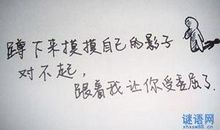 蹲下来摸摸自己的影子
对不起,
跟着我让你受委屈了.
谜语网